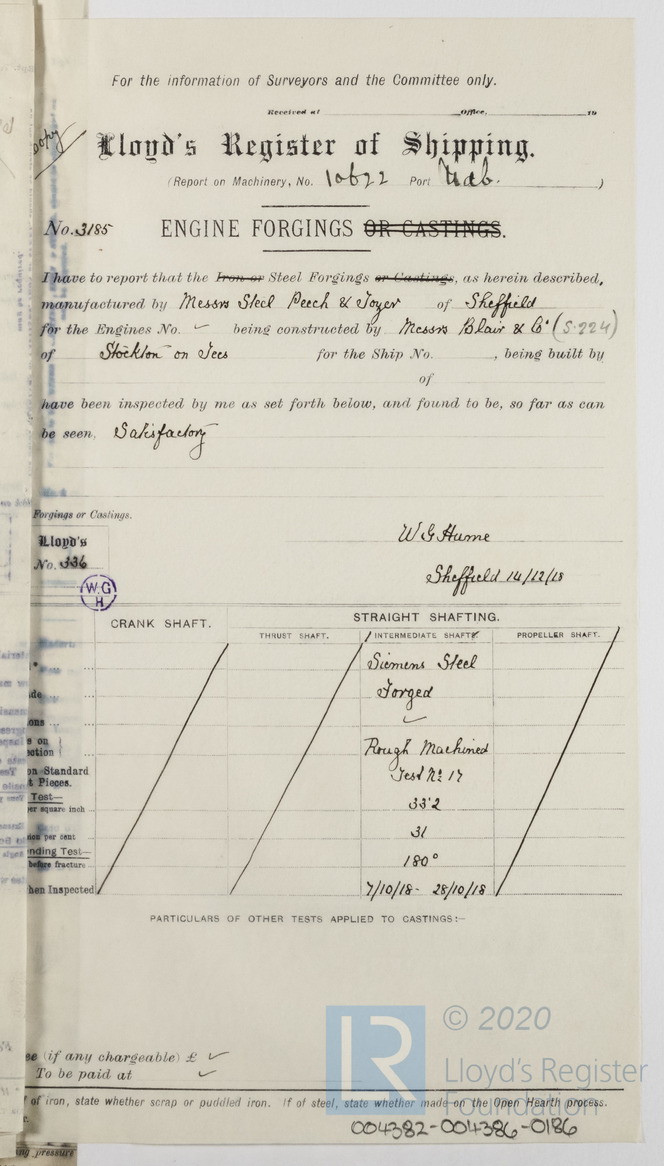 For the information of Surveyors and the Committee only.
Received at Office, 19
Copy
Lloyd's Register of Shipping.
(Report on Machinery, No. 10622 Port Mdb. )
No. 3185 ENGINE FORGINGS OR CASTINGS.
I have to report that the Iron or Steel Forgings or Castings, as herein described,
manufactured by Messrs Steel Peech & Tozer of Sheffield
for the Engines No. ✓ being constructed by Messrs Blair & Co (S.224)
of Stockton on Tees for the Ship No. , being built by
of
have been inspected by me as set forth below, and found to be, so far as can
be seen, Satisfactory
Forgings or Castings.
Lloyd's
No. 336
W G Hume
Sheffield 14/12/18
W.G
H
CRANK SHAFT. STRAIGHT SHAFTING.
THRUST SHAFT. 1 INTERMEDIATE SHAFT PROPELLER SHAFT.
Siemens Steel
Forged
ons ... ✓
s on
ection Rough Machined
on Standard
t Pieces. Test No 17
Test—
per square inch ... 33.2
sion per cent 31
nding Test—
before fracture 180°
hen Inspected 7/10/18 - 28/10/18
PARTICULARS OF OTHER TESTS APPLIED TO CASTINGS:-
ee (if any chargeable) £ ✓
To be paid at ✓
f of iron, state whether scrap or puddled iron. If of steel, state whether made on the Open Hearth process.
ng pressure
LR
© 2020
Lloyd's Register
Foundation
004382-004386-0186